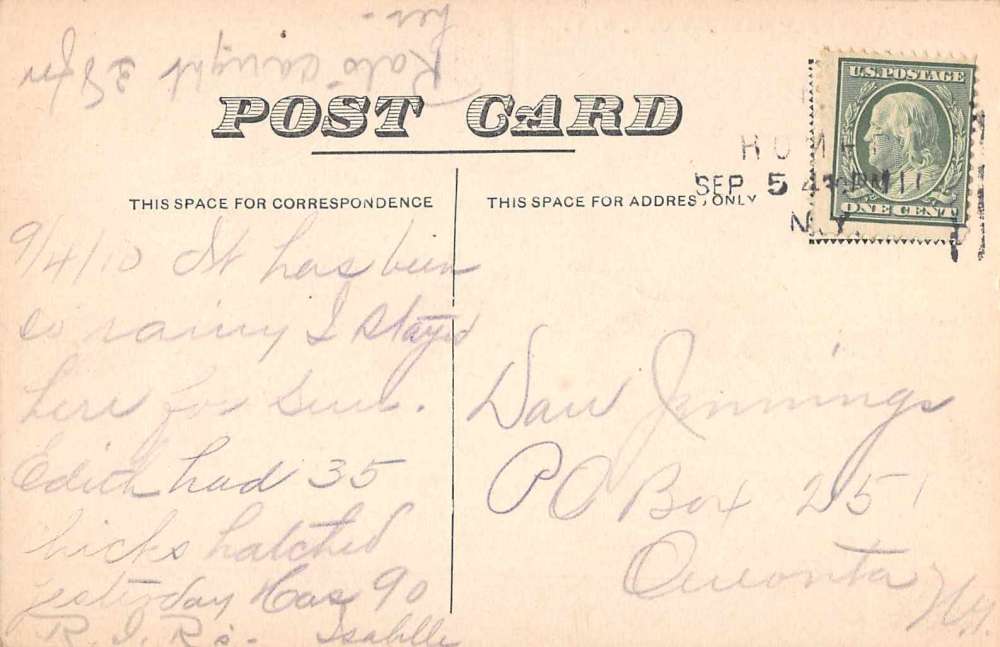 Rats caught 38 for
her -
POST CARD
THIS SPACE FOR CORRESPONDENCE
THIS SPACE FOR ADDRESS ONLY
U.S. POSTAGE
ONE CENT
SEP 5 4
N.Y.
9/4/10 It has been
so rainy I stayed
here for Sun.
Edith had 35
chicks hatched
yesterday has 90
R. I. R's - Isabelle
Jennings
PO Box 251
Oneonta
N.Y.